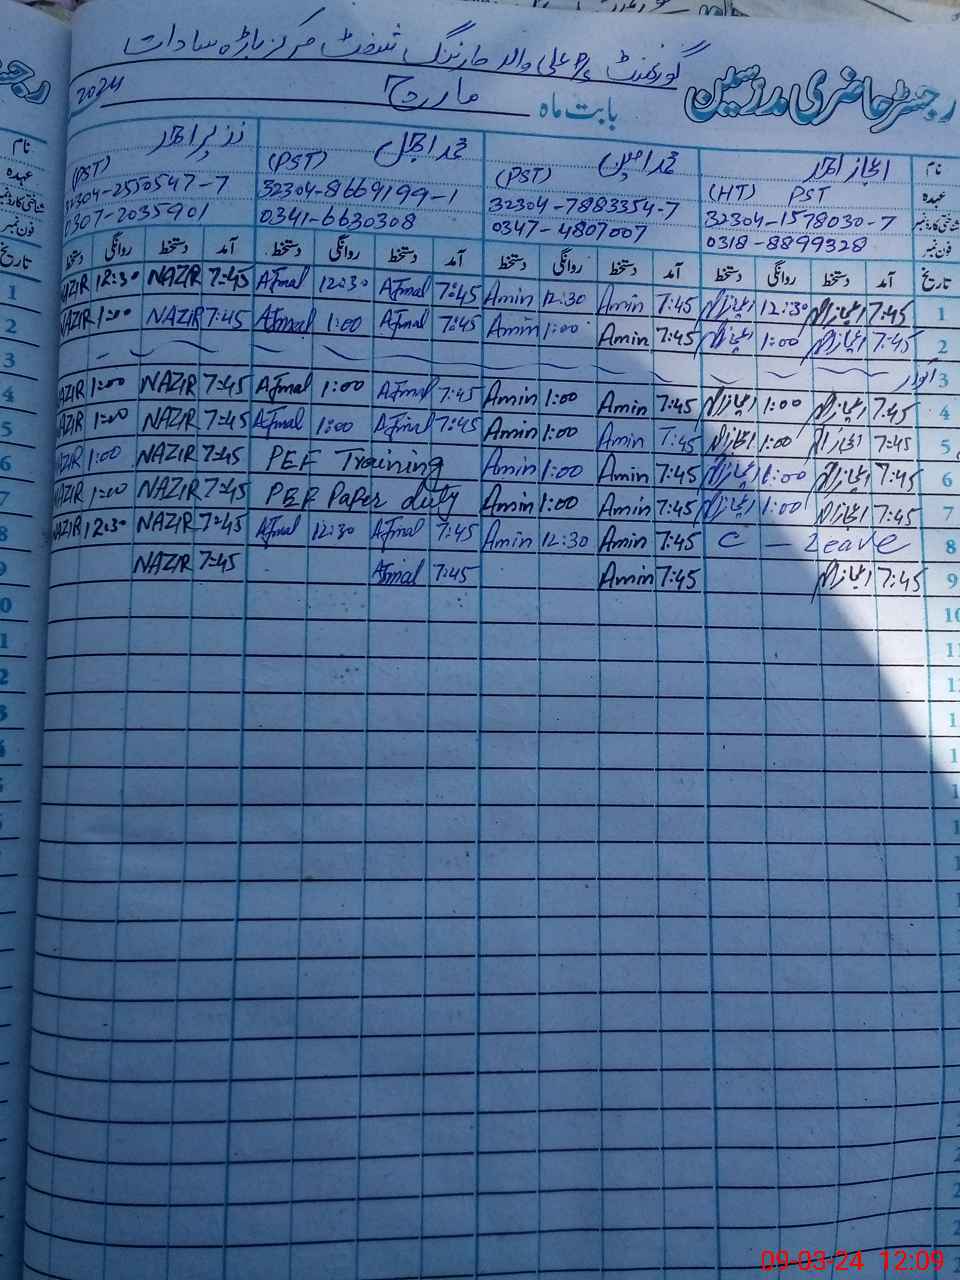 رجسٹر حاضری مدرسین
گورنمنٹ پ علی والہ مارننگ شفٹ مرکز باڑہ سادات
بابت ماہ مارچ 2024
نام اعجاز احمد محمد امین محمد اجمل نذیر احمد
عہدہ (HT) PST (PST) (PST) (PST)
شناختی کارڈ نمبر 32304-1578030-7 32304-7883354-7 32304-8669199-1 32304-2550547-7
فون نمبر 0318-8899328 0347-4807007 0341-6630308 0307-2035901
تاریخ آمد دستخط روانگی دستخط آمد دستخط روانگی دستخط آمد دستخط روانگی دستخط آمد دستخط روانگی دستخط
1 7:45 اعجاز احمد 12:30 اعجاز احمد 7:45 Amin 12:30 Amin 7:45 Ajmal 12:30 Ajmal 7:45 NAZIR 12:30 NAZIR
2 7:45 اعجاز احمد 1:00 اعجاز احمد 7:45 Amin 1:00 Amin 7:45 Ajmal 1:00 Ajmal 7:45 NAZIR 1:00 NAZIR
3 اتوار
4 7:45 اعجاز احمد 1:00 اعجاز احمد 7:45 Amin 1:00 Amin 7:45 Ajmal 1:00 Ajmal 7:45 NAZIR 1:00 NAZIR
5 7:45 اعجاز احمد 1:00 اعجاز احمد 7:45 Amin 1:00 Amin 7:45 Ajmal 1:00 Ajmal 7:45 NAZIR 1:00 NAZIR
6 7:45 اعجاز احمد 1:00 اعجاز احمد 7:45 Amin 1:00 Amin PEF Training 7:45 NAZIR 1:00 NAZIR
7 7:45 اعجاز احمد 1:00 اعجاز احمد 7:45 Amin 1:00 Amin PEF Paper duty 7:45 NAZIR 1:00 NAZIR
8 C - Leave 7:45 Amin 12:30 Amin 7:45 Ajmal 12:30 Ajmal 7:45 NAZIR 12:30 NAZIR
9 7:45 اعجاز احمد 7:45 Amin 7:45 Ajmal 7:45 NAZIR
10
11
12
09-03-24 12:09